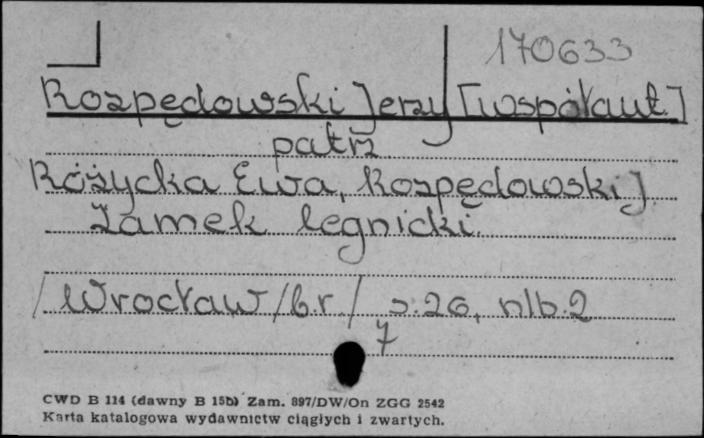 170633
Rozpędowski Jerzy [współaut.]
patrz
Różycka Ewa, Rozpędowski J.
Zamek legnicki.
/Wrocław /b.r./ s. 26, nlb. 2
7
CWD B 114 (dawny B 15b) Zam. 897/DW/On ZGG 2542
Karta katalogowa wydawnictw ciągłych i zwartych.